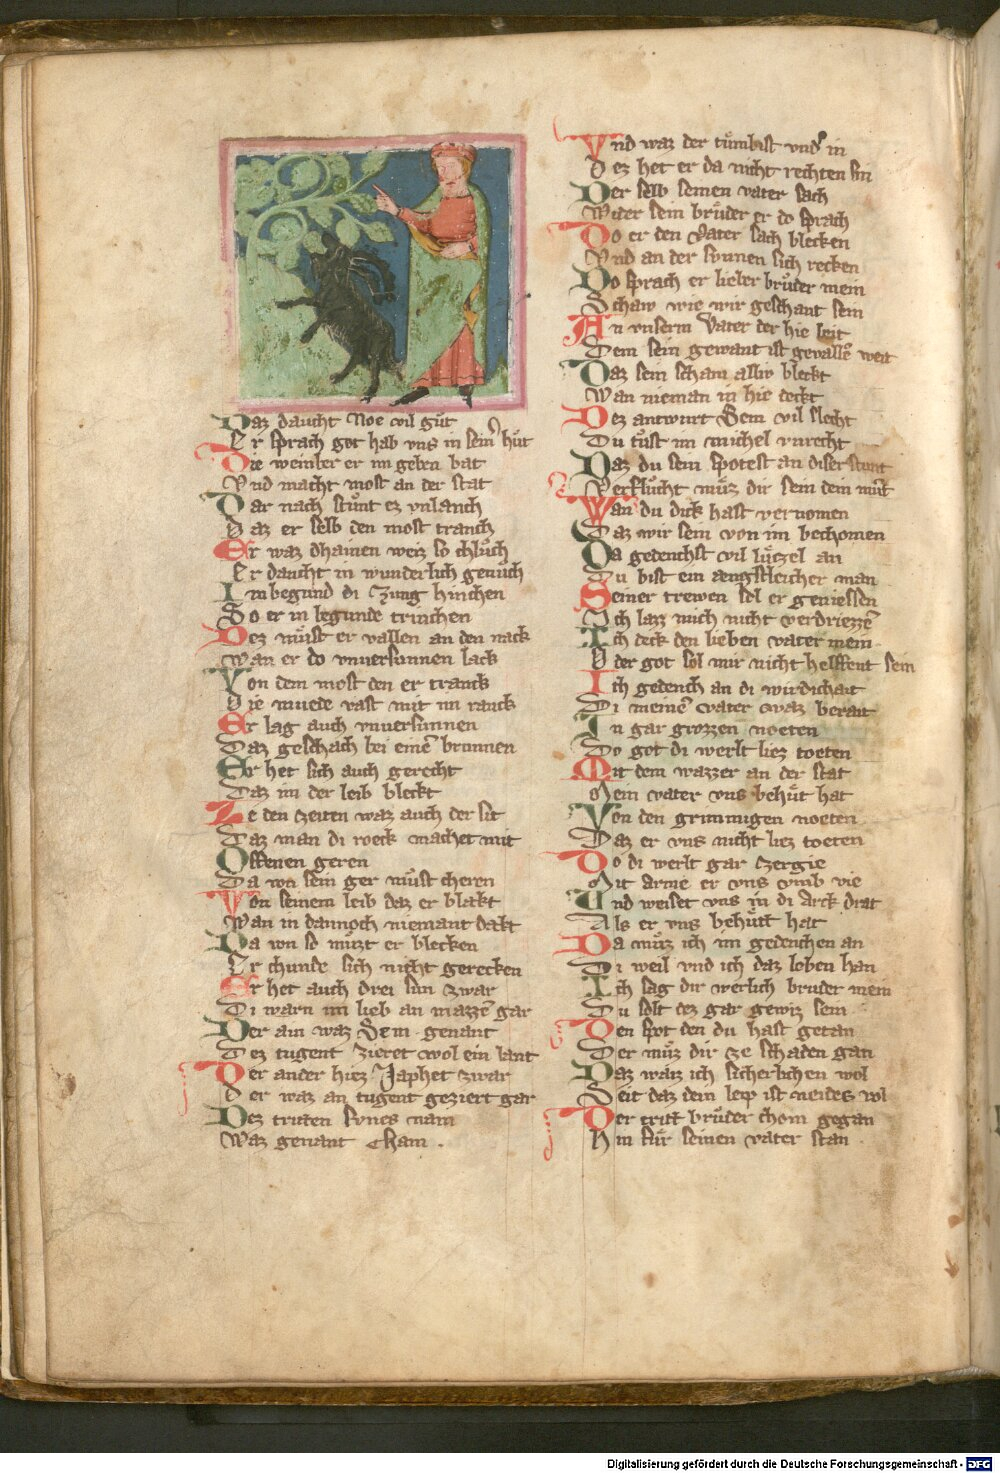 Daz daucht Noe vil gůt
Er sprach got hab vns in sein̄ hůt
Die weinber er im geben bat
Vnd macht most an der stat
Dar nach stůnt ez vnlanch
Daz er selb den most tranch
Er waz dhainen weiz so chlůch
Er daucht in wunderlich genůch
Im begund di zung hinchen
So er in begunde trinchen
Dez můst er vallen an den nack
Wan er do vnuersunnen lack
Von dem most den er tranck
Die muede vast mit im ranck
Er lag auch vnuersunnen
Daz geschach bei einē brunnen
Er het sich auch gerecht
Daz im der leib bleckt
Ze den zeiten waz auch der sit
Daz man di roeck machet mit
Offenen geren
Da von sein ger můst cheren
Von seinem leib daz er blackt
Wan in dannoch niemant dakt
Da von so můzt er blecken
Er chunde sich nicht gerecken
Er het auch drei sůn zwar
Di warn im lieb an mazzē gar
Der ain waz Sem genant
Dez tugent zieret wol ein lant
Der ander hiez Japhet zwar
Der waz an tugent geziert gar
Dez triten sunes nam
Waz genant Cham .
Vnd waz der tůmbist vnd̾ in
Dez het er da nicht rechten sin
Der selb seinen vater sach
Wider sein brůder er do sprach
Do er den Vater sach blecken
Vnd an der sunnen sich recken
Do sprach er lieber brůder mein
Schaw wie wir geschant sein
An vnserm Vater der hie leit
Dem sein gewant ist geuallē weit
Daz sein scham allw bleckt
Wan nieman in hie deckt
Dez antwurt Sem vil slecht
Du tůst im michel vnrecht
Daz du sein spotest an diser stunt
Verflůcht můz dir sein dein můt
Wan du dick hast vernomen
Daz wir sein von im bechomen
Da gedenchst vil lůtzel an
Du bist ein aengstleicher man
Seiner trewen sol er geniessen
Ich laz mich nicht verdriezzē
Ich deck den lieben vater mein
Oder got sol mir nicht helffent sein
Ich gedench an di wirdichait
Di meinē vater waz berait
In gar grozzen noeten
Do got di werlt liez toeten
Mit dem wazzer an der stat
Mein vater vns behůt hat
Von den grimmigen noeten
Daz er vns nicht liez toeten
Do di werlt gar zergie
Mit arme er vns vmb vie
Und weiset vns in di Arck drat
Als er vns behůtt hat
Da můz ich im gedenchen an
Di weil vnd ich daz leben han
Ich sag dir werlich bruder mein
Du solt dez gar gewiz sein
Den spot den du hast getan
Der můz dir ze schaden gan
Daz waiz ich sicherlichen wol
Seit daz dein leip ist neides vol
Der tritt brůder chom gegan
Hin fůr seinen vater stan
Digitalisierung gefördert durch die Deutsche Forschungsgemeinschaft - DFG